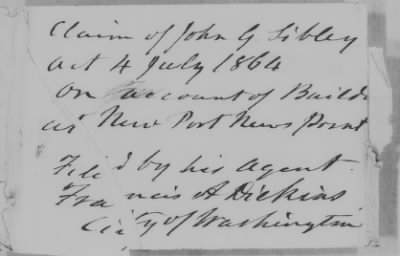 Claim of John G Sibley
act 4 July 1864
on account of Build
at New Port News Point
Filed by his Agent
Francis A Dickins
City of Washington